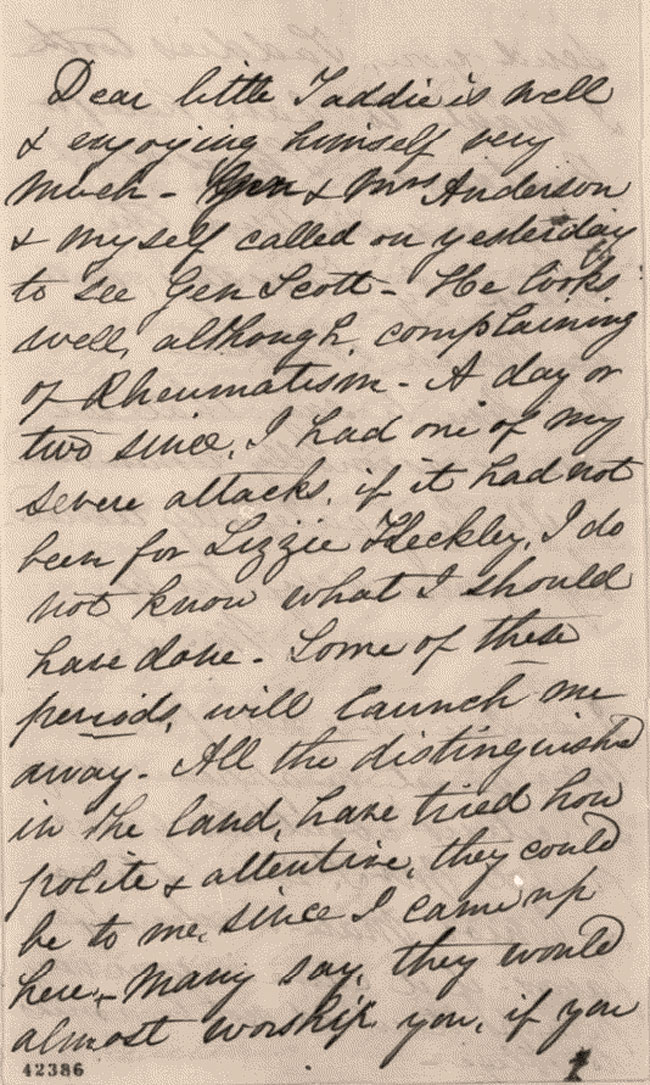 Dear little Taddie is well
& enjoying himself very
much - Gen & Mrs Anderson
& myself called on yesterday
to see Gen Scott - He looks
well, although complaining
of Rheumatism - A day or
two since, I had one of my
severe attacks, if it had not
been for Lizzie Keckley, I do
not know what I should
have done - Some of these
periods, will launch me
away - All the distinguished
in the land, have tried how
polite & attentive, they could
be to me, since I came up
here - Many say, they would
almost worship you, if you
42386